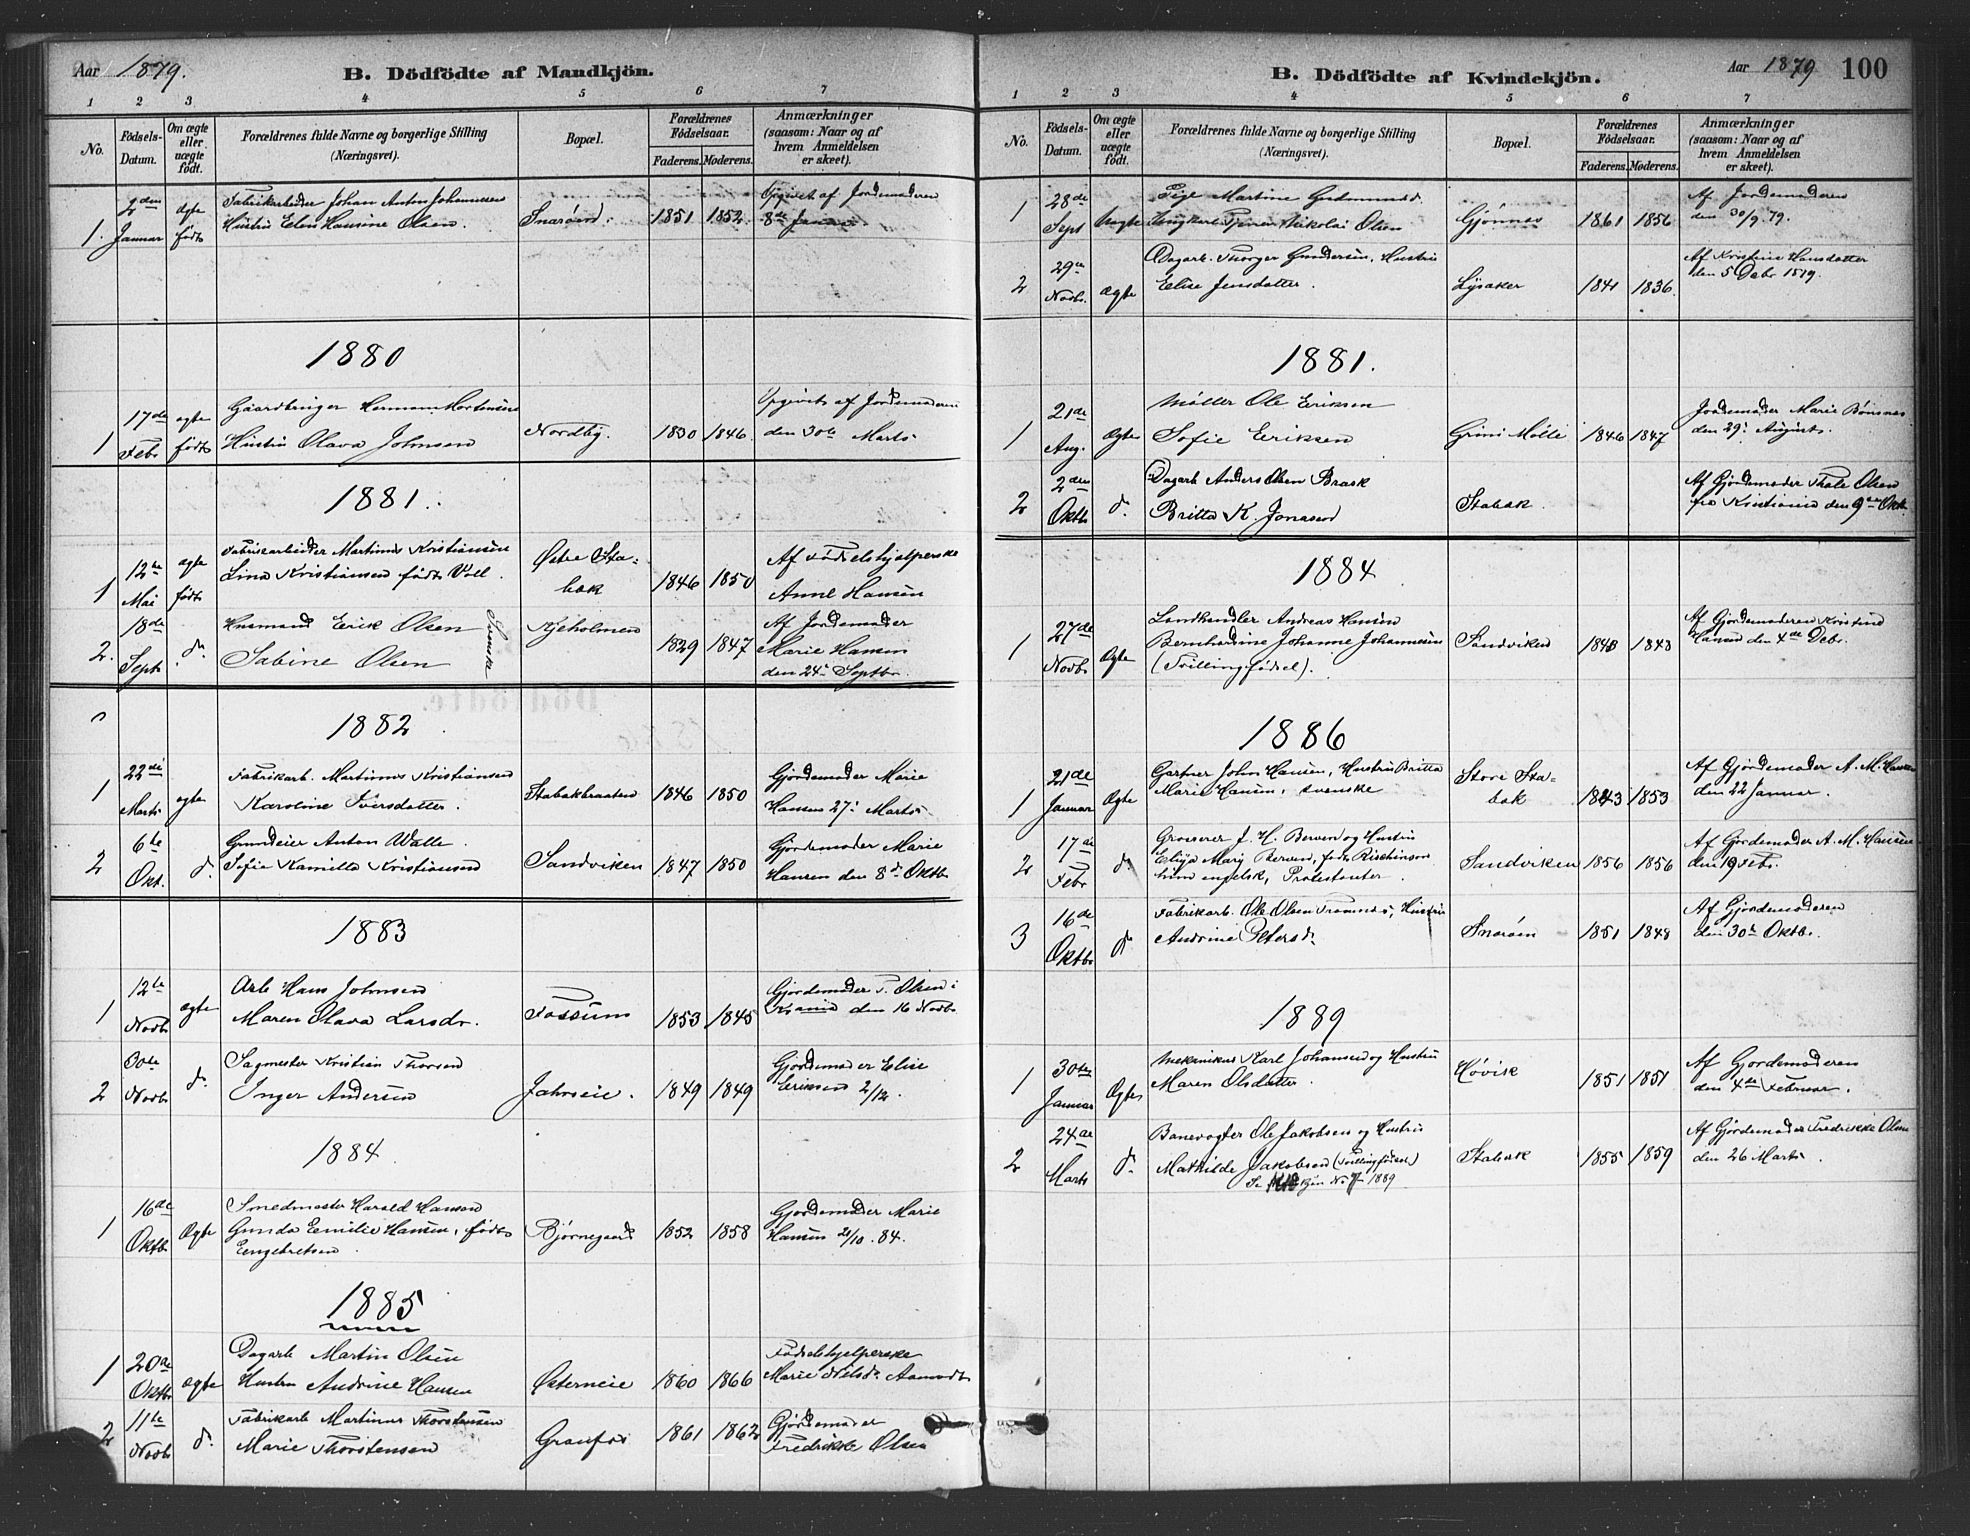 Aar 1879.
B. Dödfödte af Mandkjön.
1 2 3 4 5 6 7
No.
Födsels-Datum.
Om ægte eller uægte födt.
Forældrenes fulde Navne og borgerlige Stilling (Næringsvei).
Bopæl.
Forældrenes Födselsaar.
Faderens. Moderens.
Anmærkninger (saasom: Naar og af hvem Anmeldelsen er skeet).
2den Januar
1.
ægte født
Fabrikarbeider Johan Anton Johannesen
Hustru Elen Hansine Olsen.
Snarøen.
1851 1852
Opgivet af Jordemoderen
8de Januar.
1880
1
17de Febr
ægte født
Gaardbruger Herman Mortensen
Hustru Olava Johnsen
Nordby.
1830 1846.
Opgivet af Jordemoderen
den 30te Marts
1881.
1
12te Mai
ægte født
Fabrikarbeider Martinus Kristiansen
Lina Kristiansen født Voll.
Østre Sta-
bæk
1846 1850
Af Fødselshjælperske
Anne Hansen
2.
18de Sept
d.
Husmand Eerik Olsen
Sabine Olsen
Svenske
Kjeholmen
1829 1847
Af Jordemoder
Marie Hansen
den 24de Septbr.
1882
1
22de Marts
ægte
Fabrikarb. Martinus Kristiansen
Karoline Iversdatter.
Stabækbraaten
1846 1850
Gjordemoder Marie
Hansen 27. Marts
2
6te Okt.
d.
Grundeier Anton Walle.
Sofie Kamilla Kristiansen
Sandviken
1847 1850
Gjordemoder Marie
Hansen den 8de Oktbr
1883
1
12te Novbr
ægte
Arb. Hans Johnsen
Maren Olava Larsdr.
Fossum
1853 1845
Gjordemoder T. Olsen i
Krania den 16 Novbr
2
30te Novbr
d.
Sagmester Kristian Thorsen
Inger Andersen
Jahrseie.
1849 1849
Gjordemoder Elise
Eriksen 2/12.
1884
1
16de Oktbr
Ægte
Smedmester Harald Hansen
Gunda Eemilie Hansen, født
Eengebretsen.
Bjørnegaard
1852 1858
Gjordemoder Marie
Hansen 21/10. 84.
1885
1
20de Oktbr
ægte
Dagarb Martin Olsen
Hustru Andrine Hansen
Østerneie
1860 1866
Fødselshjelperske
Marie Nilsdr Aamodt
2
11te Novbr
d.
Fabrikarb Martinus Thorstensen
Marie Thorstensen
Granfos
1861 1862
Gjørdemoder
Fredrikke Olsen
B. Dödfödte af Kvindekjön.
Aar 1879
100
1 2 3 4 5 6 7
No.
Födsels-Datum.
Om ægte eller uægte födt.
Forældrenes fulde Navne og borgerlige Stilling (Næringsvei).
Bopæl.
Forældrenes Födselsaar.
Faderens. Moderens.
Anmærkninger (saasom: Naar og af hvem Anmeldelsen er skeet).
1
28de Sept
Uægte
Pige Martine Gudmunsd.
Ungkarl Tjener Nikolai Olsen
Gjønnes
1861 1856
Af Jordemoderen
den 30/9 79.
2
29de Novbr.
Ægte
Dagarb. Thorger Gundersen, Hustru
Elise Jensdatter.
Lysaker
1841 1836.
Af Kristine Hansdatter
den 5 Debr 1879.
1881.
1
21de Aug.
Ægte
Møller Ole Eriksen
Sofie Eriksen
Grini Mølle
1846 1847
Jordemoder Marie Bønsnes
den 29. Augusts.
2
2den Oktb
d.
Dagarb Anders Olsen Brask
Britta K. Jonassen
Stabæk.
Af Gjordemoder Thale Olsen
fra Kristiania den 9de Okt.
1884
1
27de Novbr
Ægte
Landhandler Andreas Hansen
Bernhardine Johanne Johannesen
(Tvillingfødsel).
Sandviken
1843 1843
Af Gjordemoderen Kristine
Hansen den 4de Debr.
1886
1
21de Januar
Ægte
Gartner John Hansen, Hustru Britta
Marie Hansen, svenske
Store Sta-
bæk
1843 1853
Af Gjordemoder A. M. Hansen
den 22 Januar.
2
17de Febr
d.
Grosserer J. H. Berven og Hustru
Mary Berven, født
hun engelsk, Protestanter.
Sandviken
1856 1856
Af Gjordemoder A. M. Hansen
den 19 Febr.
3
16de Oktbr
d.
Fabrikarb. Ole Olsen Tromnes, Hustru
Andrine Petersd.
Snarøen
1851 1848
Af Gjordemoderen
den 30te Oktbr.
1889
1
30te Januar
Ægte
Mekanikus Karl Johansen og Hustru
Maren Olsdatter.
Høvik
1851 1851
Af Gjordemoderen
den 4de Februar.
2
24de Marts
d.
Banevogter Ole Jakobsen og Hustru
Mathilde Jakobsen (Tvillingfødsel.)
Se kjøn No 7 1889
Stabæk
1855 1859
Af Gjordemoder Fredrikke Olsen
den 26 Marts.